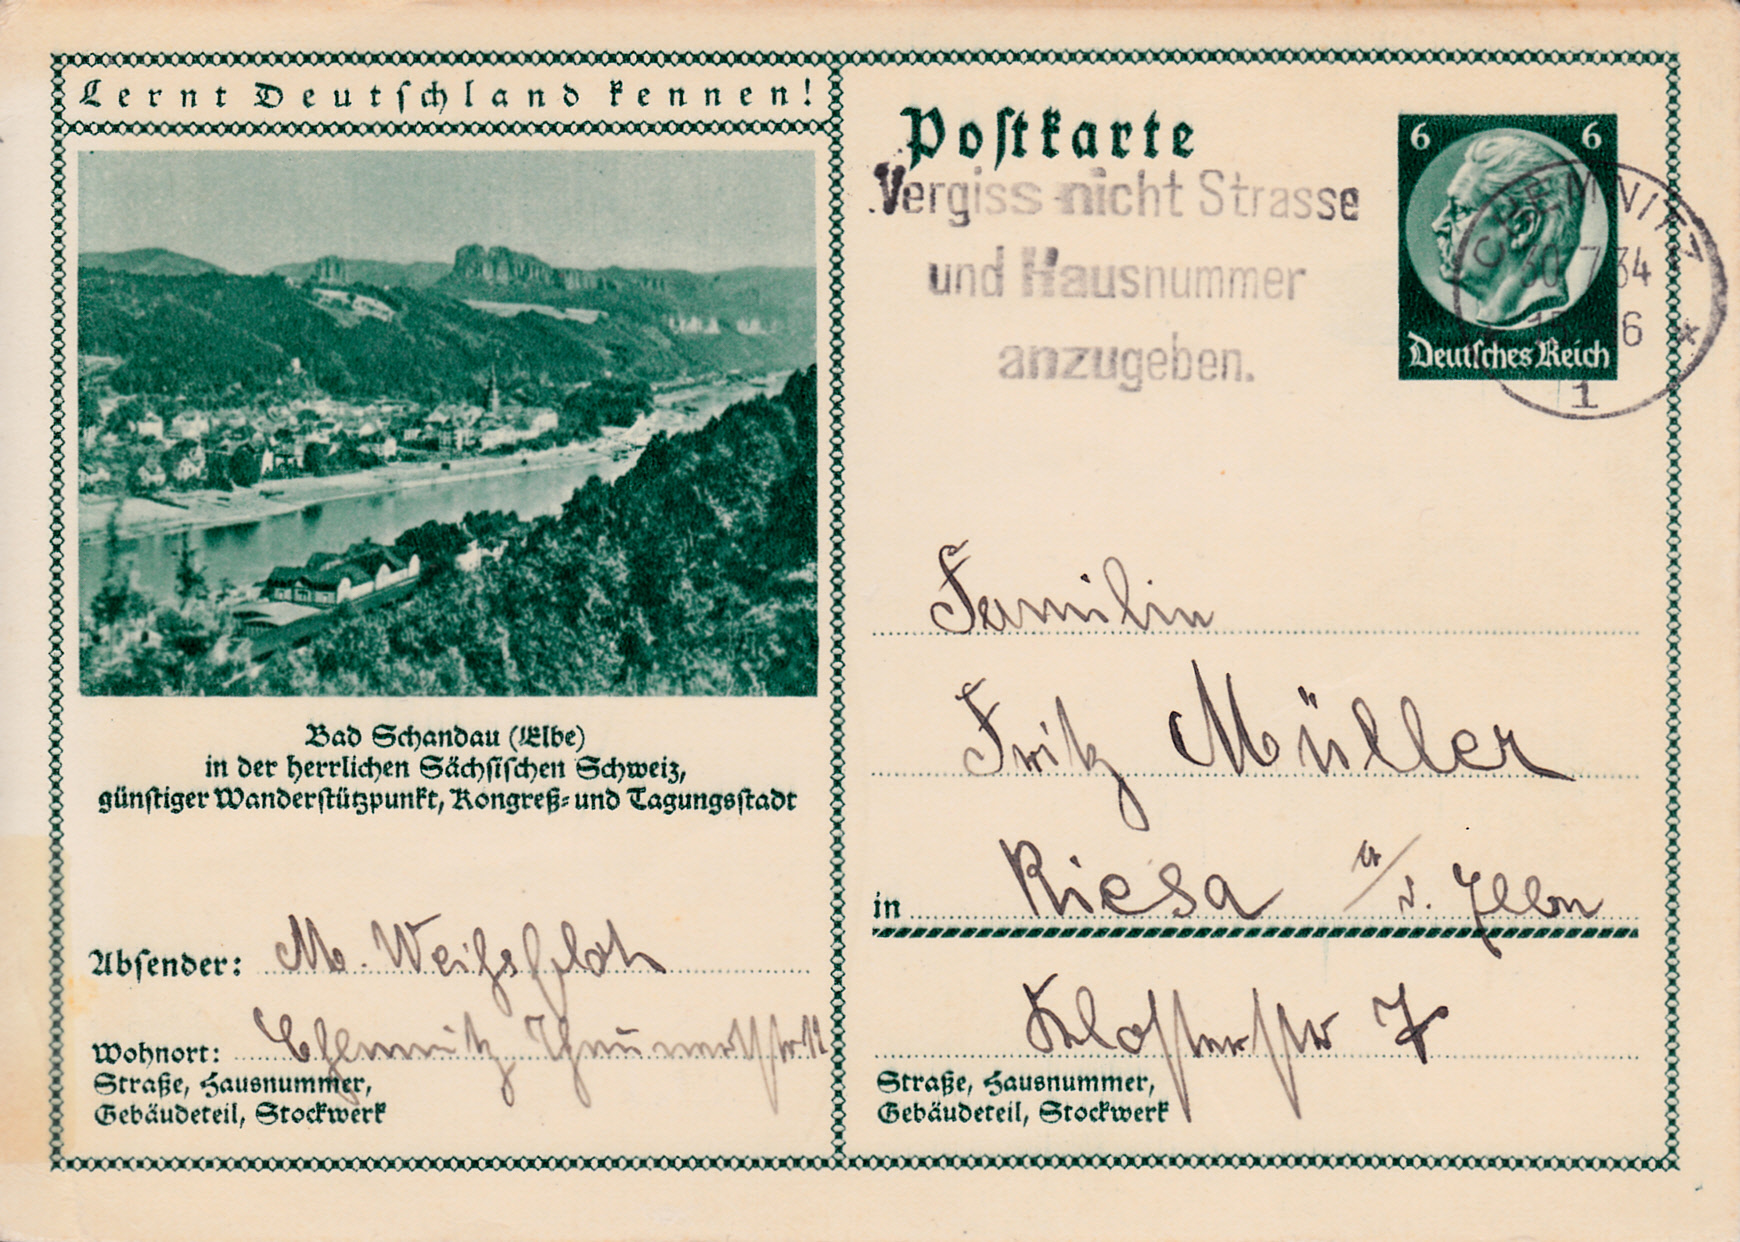 Lernt Deutschland kennen!
Bad Schandau (Elbe)
in der herrlichen Sächsischen Schweiz,
günstiger Wanderstützpunkt, Kongreß- und Tagungsstadt
Absender: M.
Wohnort: Chemnitz
Straße, Hausnummer,
Gebäudeteil, Stockwerk
Postkarte
Vergiss nicht Strasse
und Hausnummer
anzugeben.
6 6
Deutsches Reich
CHEMNITZ
30.7.34
1
Familie
Fritz Müller
in Riesa a/d. Elbe
Klosterstr 7
Straße, Hausnummer,
Gebäudeteil, Stockwerk